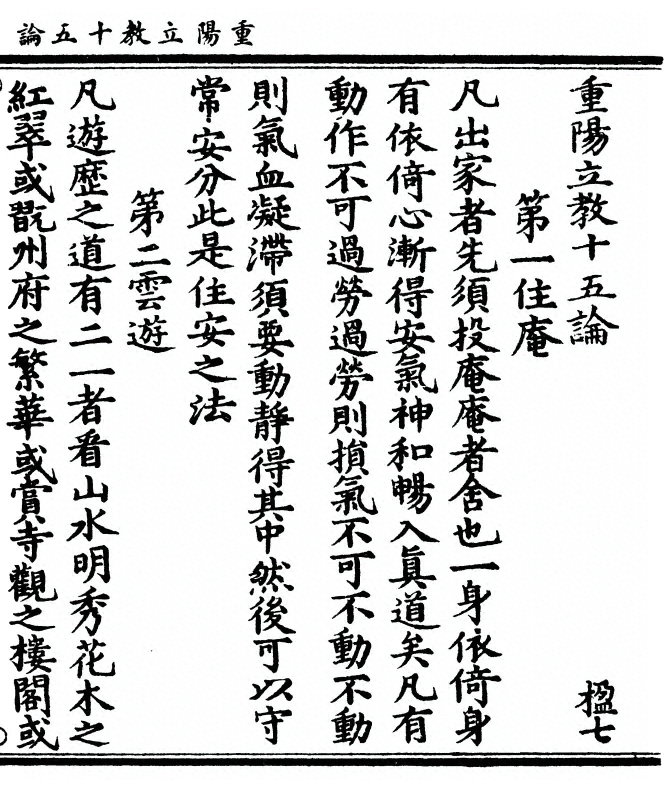 重陽立教十五論
重陽立教十五論 楹七
第一住庵
凡出家者先須投庵庵者舍也一身依倚身
有依倚心漸得安氣神和暢入眞道矣凡有
動作不可過勞過勞則損氣不可不動不動
則氣血凝滯須要動靜得其中然後可以守
常安分此是住安之法
第二雲遊
凡遊歷之道有二一者看山水明秀花木之
紅翠或翫州府之繁華或賞寺觀之樓閣或